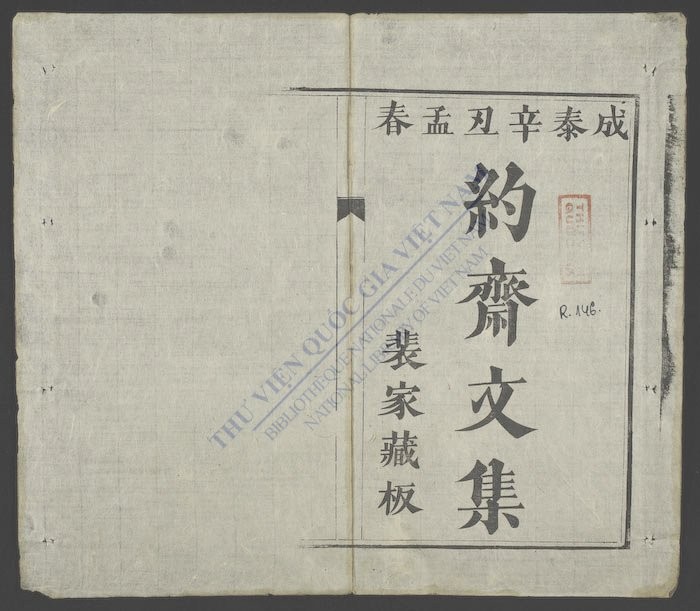 成泰辛丑孟春
約齋文集
裴家藏板
R.146.
THƯ VIỆN QUỐC GIA VIỆT NAM
BIBLIOTHÈQUE NATIONALE DU VIETNAM
NATIONAL LIBRARY OF VIETNAM